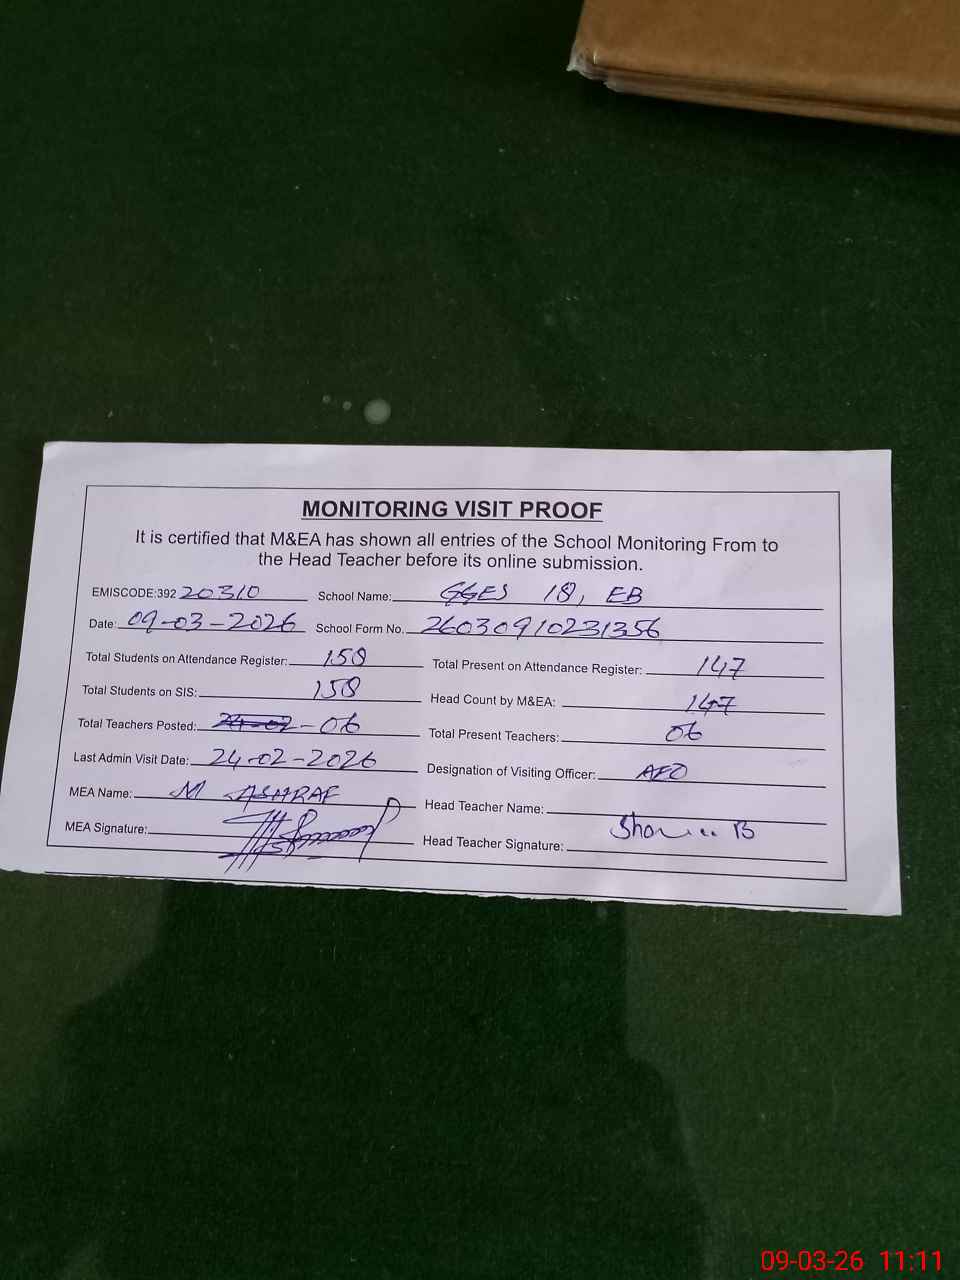 MONITORING VISIT PROOF
It is certified that M&EA has shown all entries of the School Monitoring From to
the Head Teacher before its online submission.
EMISCODE:392 20310 School Name: GGES 18, EB
Date: 09-03-2026 School Form No. 26030910231356
Total Students on Attendance Register: 158 Total Present on Attendance Register: 147
Total Students on SIS: 158 Head Count by M&EA: 147
Total Teachers Posted: 24-02 - 06 Total Present Teachers: 06
Last Admin Visit Date: 24-02-2026 Designation of Visiting Officer: AEO
MEA Name: M ASHRAF Head Teacher Name:
MEA Signature: Head Teacher Signature:
09-03-26 11:11